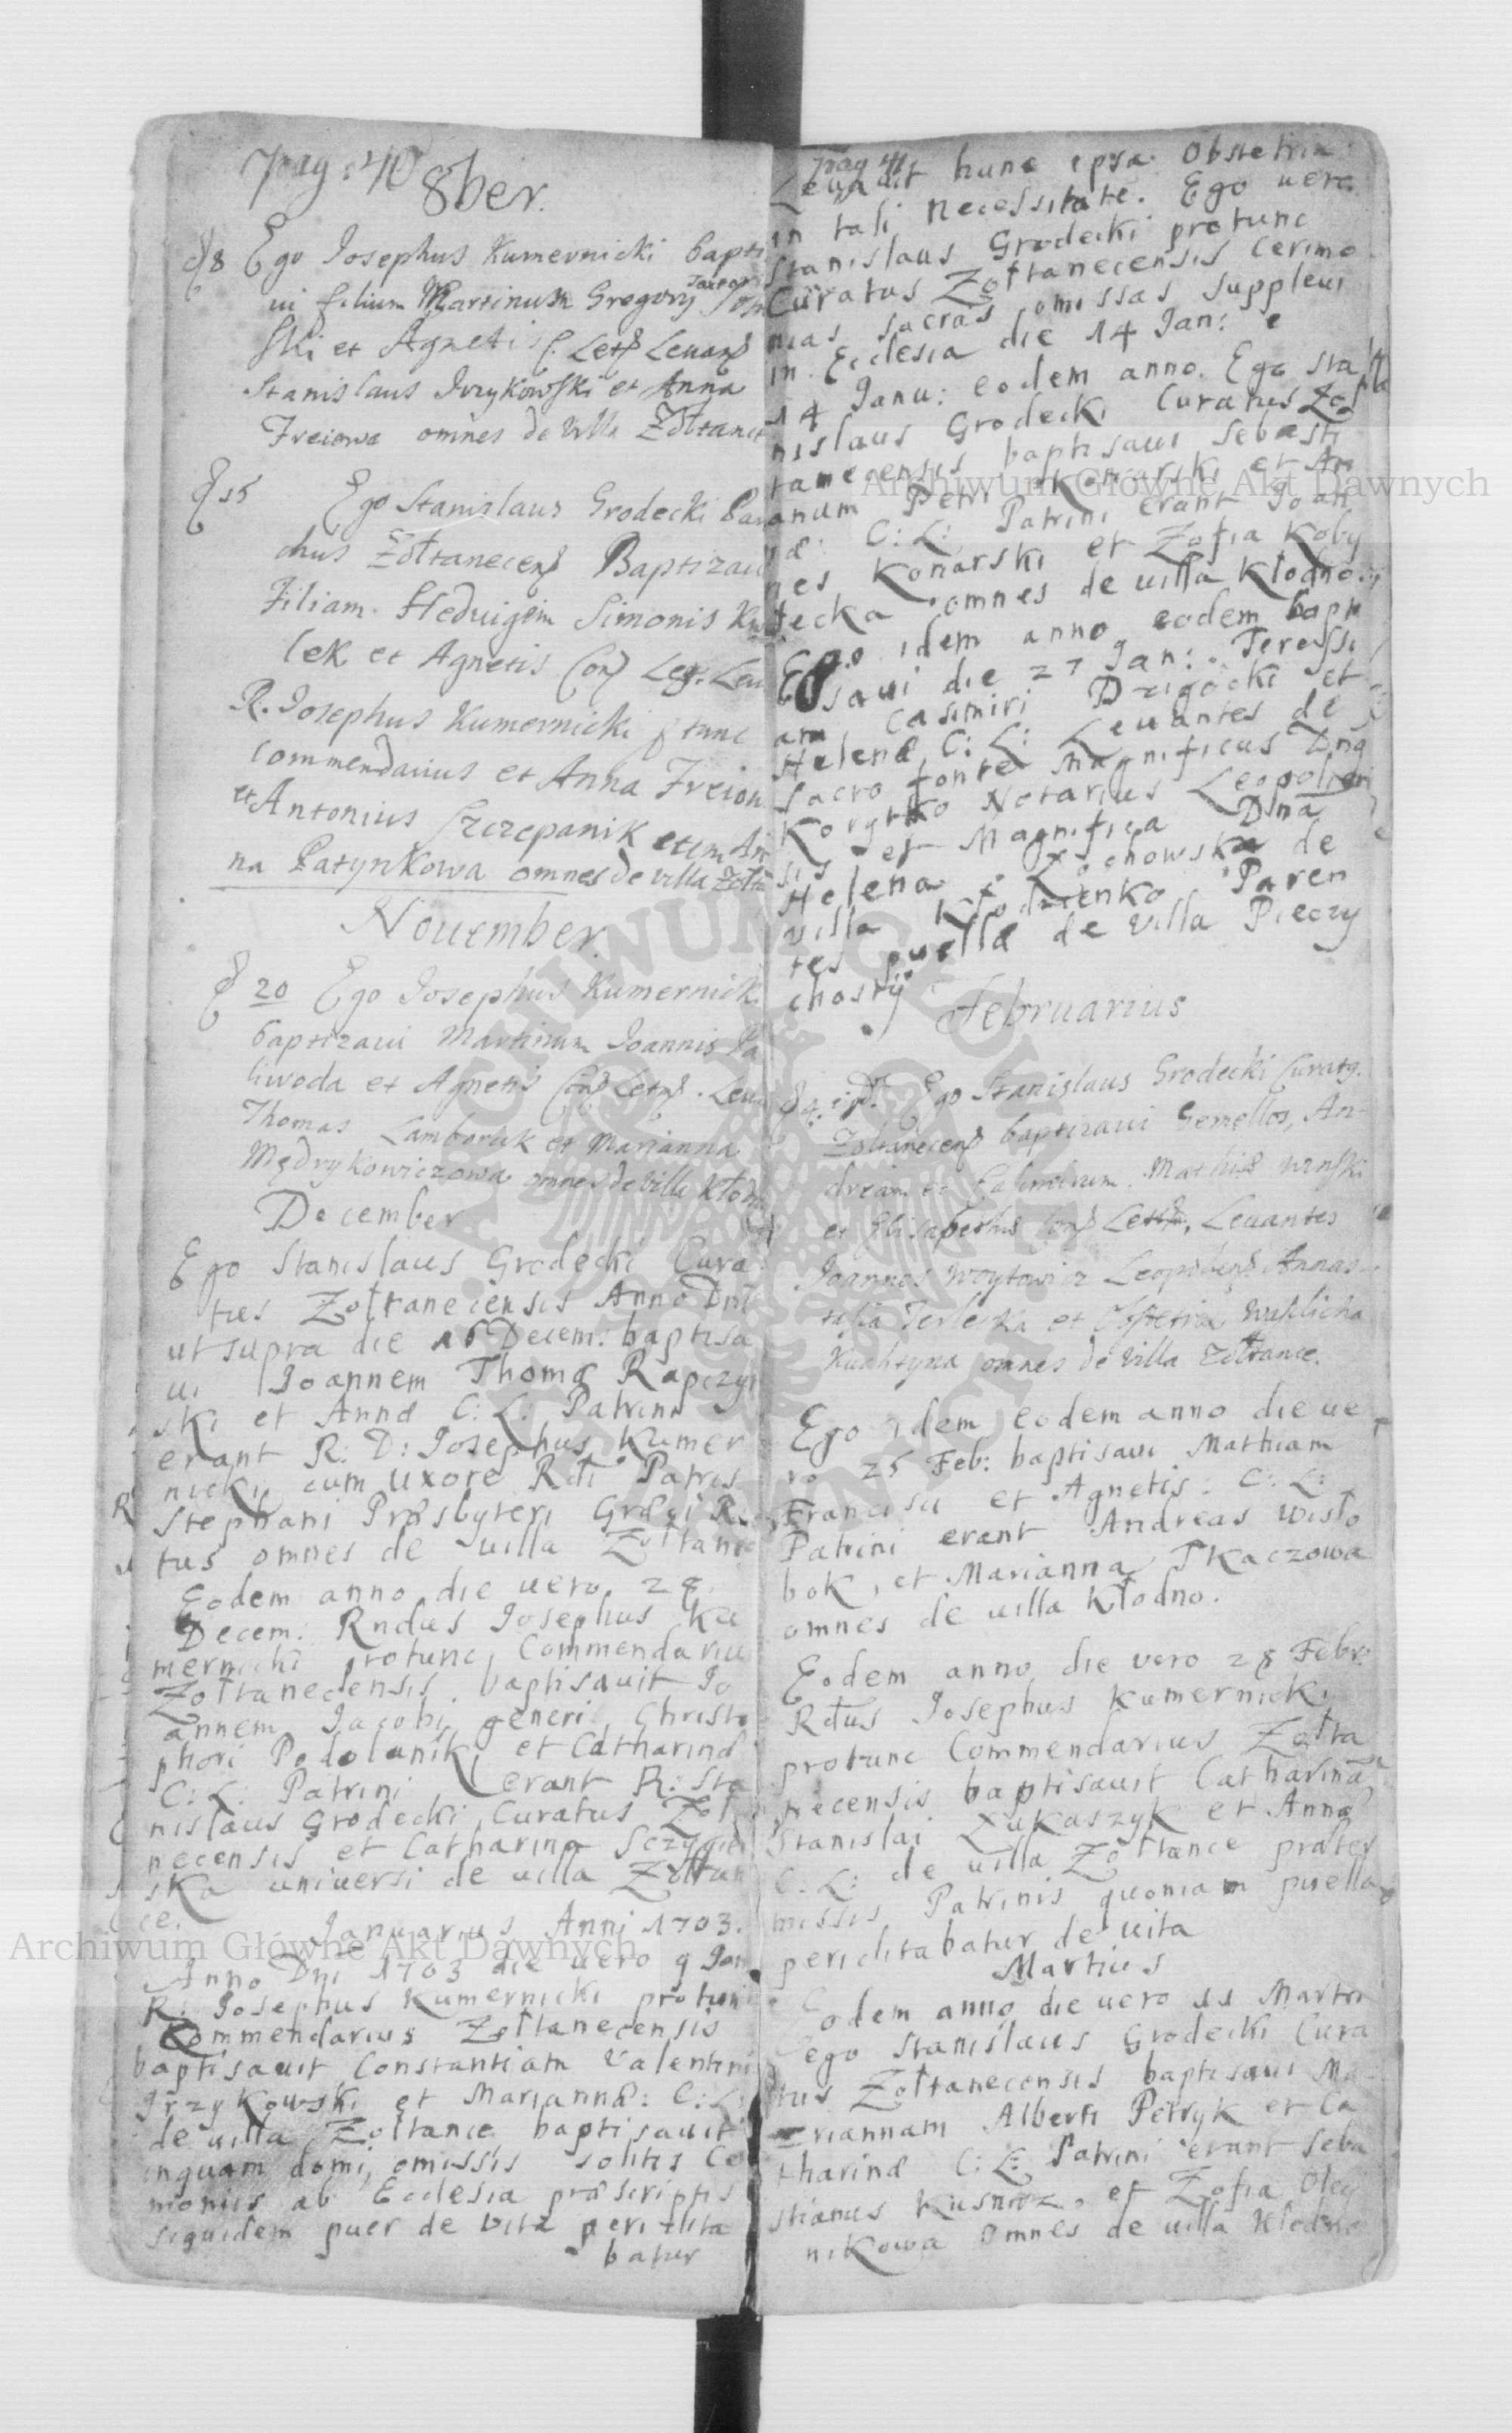 pag: 40
8ber.
d 8 Ego Josephus Kumernicki bapti
ui filium Martinum Gregory
ski et Agnetis C. Leg Leuang
Stanislaus Irzykowski et Anna
Freiowa omnes de Villa Zołtance
d 15 Ego Stanislaus Grodecki Paro
chus Zołtanecens Baptizaui
Filiam Heduigem Simonis
lek et Agnetis Conj Leg. Leu
R. Josephus Kumernicki ptunc
commendarius et Anna Freiow
et Antonius Szczepanik et An
na Patynkowa omnes de villa Zołta
Nouember.
d 20 Ego Josephus Kumernicki
baptizaui Martinum Joannis Pa
liwoda et Agnetis Conj Leg. Leua
Thomas et Marianna
Mędrykowiczowa omnes de villa Kłodn
December
Ego Stanislaus Grodecki Cura
tus Zołtanecensis Anno Dni
ut supra die 16 Decem: baptisa
ui Joannem Thomæ Rapczyn
ski et Annæ C: L: Patrini
erant R: D: Josephus Kumer
nicki cum uxore Rdi Patris
Stephani Præsbyteri Græci Ri
tus omnes de uilla Zołtance
Eodem anno die uero 28
Decem: Rndus Josephus Ku
mernicki protunc Commendarius
Zołtanecensis baptisauit Jo
annem Jacobi generi Christo
phori Podolanik et Catharinæ
C: L: Patrini erant R: Sta
nislaus Grodecki Curatus Zołta
necensis et Catharina
ska uniuersi de uilla Zołtan
ce.
Januarius Anni 1703.
Anno Dni 1703 die uero 9 Jan
R: Josephus Kumernicki protunc
Commendarius Zołtanecensis
baptisauit Constantiam Valentini
Irzykowski et Mariannæ: C: L:
de uilla Zołtance baptisauit
inquam domi, omissis solitis Ce
moniis ab Ecclesia præscriptis
siquidem puer de vita periclita
batur
pag 41
Leuauit hunc ipsa Obstetrix
in tali necessitate. Ego uero
Stanislaus Grodecki protunc
Curatus Zołtanecensis Cerimo
nias sacras omissas suppleui
in Ecclesia die 14 Jan:
14 Janu: eodem anno. Ego Sta
nislaus Grodecki Curatus Zoł
tanecensis baptisaui Sebasti
anum Petri Konarski et An
næ: C: L: Patrini erant Joan
nes Konarski et Zofia Koby
łecka omnes de uilla Kłodno
Ego idem anno eodem bapti
saui die 27 Jan: Teressi
am Casimiri Drigocki et
Helenæ C: L: Leuantes de
sacro fonte Magnificus Dng
Korytko Notarius Leopolien
sis et Magnifica Dna
Helena Łochowska de
uilla Kłodzienko Paren
tes puellæ de uilla Pieczy
chosty
Februarius
d 4: Ego Stanislaus Grodecki Curatg.
Zołtanecens baptizaui Gemellos, An-
dream et Casimirum Mathiæ
et Elisabethæ Conj Legit. Leuantes
Joannes Woytowicz Leopoliens Annas-
tasia Terlecka et Obstetrix
omnes de Villa Zołtance.
Ego idem eodem anno die ue
ro 25 Feb: baptisaui Mathiam
Francisci et Agnetis: C: L:
Patrini erant Andreas Wisło
bok, et Marianna Tkaczowa
omnes de uilla Kłodno.
Eodem anno die vero 28 Febr:
Rdus Josephus Kumernicki
protunc Commendarius Zołta
necensis baptisauit Catharinã
Stanislai Łukaszyk et Annæ
C: L: de uilla Zołtance præter
missis Patrinis quoniam puella
periclitabatur de uita
Martius
Eodem anno die uero 11 Martii
ego Stanislaus Grodecki Cura
tus Zołtanecensis baptisaui Ma
riannam Alberti Petryk et Ca
tharinæ C: L: Patrini erant Seba
stianus Kusnirz, et Zofia Oley
nikowa omnes de uilla Kłodno
Archiwum Główne Akt Dawnych
Archiwum Główne Akt Dawnych
ARCHIWUM GŁÓWNE AKT DAWNYCH